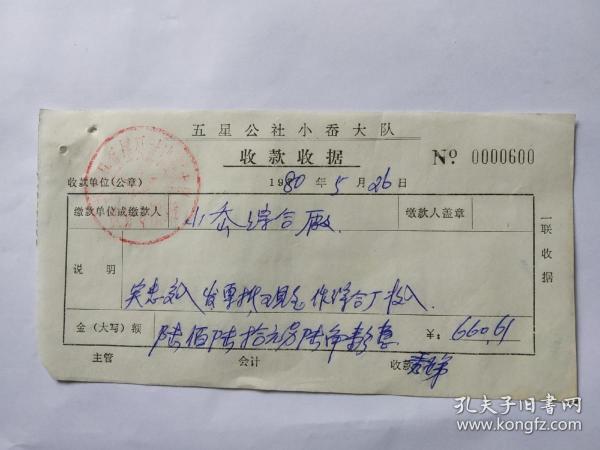 五星公社小岙大队
收款收据
№ 0000600
收款单位(公章)
1980年5月26日
缴款单位或缴款人 小岙综合厂
缴款人盖章
说明 发票 现金 作综合厂收入.
金(大写)额 陆佰陆拾元另陆角 ¥: 660.61
主管 会计 收款
一联收据
孔夫子旧书网
www.kongfz.com